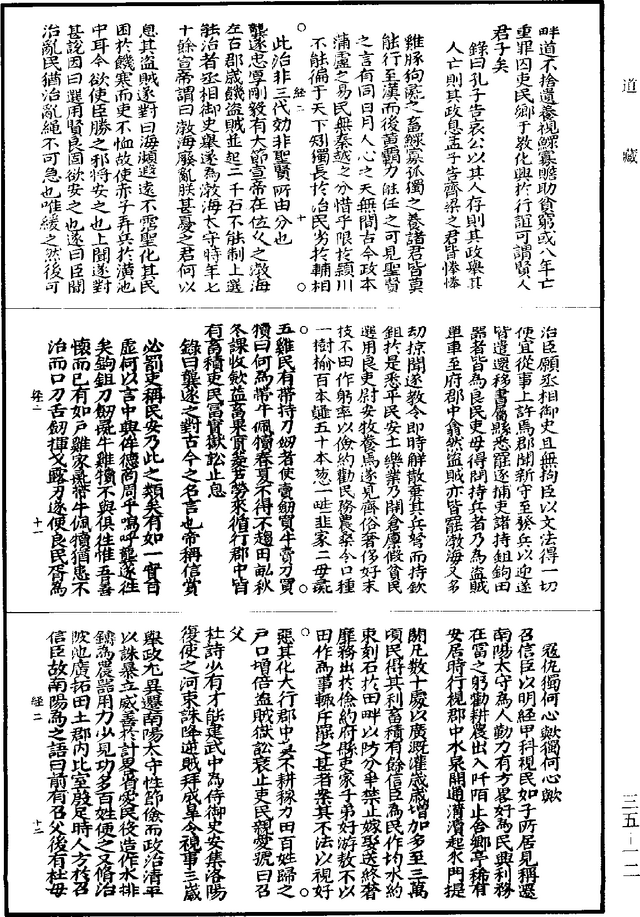 道藏
畔道不捨遺養視鰥寡贍助貧窮或八年亡
重罪囚吏民鄉于教化興於行誼可謂賢人
君子矣
錄曰孔子告哀公以其人存則其政舉其
人亡則其政息孟子告齊梁之君皆惓惓
雞豚狗彘之畜鰥寡孤獨之養諸君皆莫
能行至漢而後黃霸力能任之可見聖賢
之言有同日月人心之天無間古今政本
蒲盧之易民無秦越之分惜乎限於潁川
不能偏于天下短獨長於治民劣於輔相
經二
十
此治非三代効非聖賢所由分也
龔遂忠厚剛毅有大節宣帝在位久之渤海
左右郡歲饑盜賊並起二千石不能制上選
能治者丞相御史舉遂為渤海太守時年七
十餘宣帝謂曰渤海廢亂朕甚憂之君何以
息其盜賊遂對曰海瀕遐遠不霑聖化其民
困於饑寒而吏不恤故使赤子弄兵於潢池
中耳今欲使臣勝之邪將安之也上聞遂對
甚說因曰選用賢良固欲安之也遂曰臣聞
治亂民猶治亂繩不可急也唯緩之然後可
治臣願丞相御史且無拘臣以文法得一切
便宜從事上許焉郡聞新守至發兵以迎遂
皆遣還移書屬縣悉罷逐捕吏諸持鉏鉤田
器者皆為良民吏毋得問持兵者乃為盜賊
單車至府郡中翕然盜賊亦皆罷渤海又多
劫掠聞遂教令即時解散棄其兵弩而持鉤
鉏於是悉平民安土樂業乃開倉廩假貧民
選用良吏尉安牧養焉遂見齊俗奢侈好末
技不田作躬率以儉約勸民務農桑令口種
一樹榆百本䪥五十本葱一畦韭家二母彘
五雞民有帶持刀劒者使賣劒買牛賣刀買
犢曰何為帶牛佩犢春夏不得不趨田畝秋
冬課收斂益畜果實菱芡勞來循行郡中皆
有畜積吏民富實獄訟止息
錄曰龔遂之對古今之名言也帝稱信賞
必罰吏稱民安乃此之類矣有如一實百
虛何以言中興侔德商周乎嗚呼龔遂往
矣鉤鉏刀劒罷牛雞犢不與俱往惟吾善
懷而已有如戶雞家彘帶牛佩犢猶患不
治而口刀舌劒揮戈露刃遂使良民胥為
經二
十一
寇仇獨何心歟獨何心歟
召信臣以明經甲科視民如子所居見稱遷
南陽太守為人勤力有方畧好為民興利務
在富之躬勸耕農出入阡陌止舍鄉亭稀有
安居時行視郡中水泉開通溝瀆起水門提
閼凡數十處以廣溉灌歲歲增加多至三萬
頃民得其利畜積有餘信臣為民作均水約
束刻石於田畔以防分爭禁止嫁娶送終奢
靡務出於儉約府縣吏家子弟好游敖不以
田作為事輒斥罷之甚者案其不法以視好
惡其化大行郡中莫不耕稼力田百姓歸之
戶口增倍盜賊獄訟衰止吏民親愛號曰召
父
杜詩少有才能建武中為侍御史安集洛陽
復使之河東誅降逆賊拜成皋令視事三歲
舉政尤異遷南陽太守性節儉而政治清平
以誅暴立威善於計畧省愛民役造作水排
鑄為農器用力少見功多百姓便之又脩治
陂池廣拓田土郡內比室殷足時人方於召
信臣故南陽為之語曰前有召父後有杜母
經二
十二
三五－一一